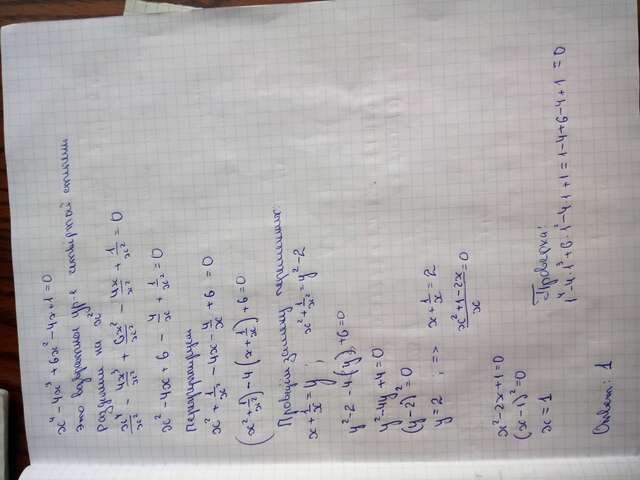 x⁴-4x³+6x²-4x+1=0
это возвратное ур-е четвёртой степени
Разделим на x²
x⁴/x² - 4x³/x² + 6x²/x² - 4x/x² + 1/x² = 0
x² - 4x + 6 - 4/x + 1/x² = 0
Перегруппируем
x² + 1/x² - 4x - 4/x + 6 = 0
(x² + 1/x²) - 4(x + 1/x) + 6 = 0
Проводим замену переменных:
x + 1/x = y ; x² + 1/x² = y² - 2
y² - 2 - 4(y) + 6 = 0
y² - 4y + 4 = 0
(y-2)² = 0
y = 2 ; => x + 1/x = 2
(x²+1-2x)/x = 0
x² - 2x + 1 = 0
(x-1)² = 0
x = 1
Проверка:
1⁴-4·1³+6·1²-4·1+1=1-4+6-4+1=0
Ответ: 1